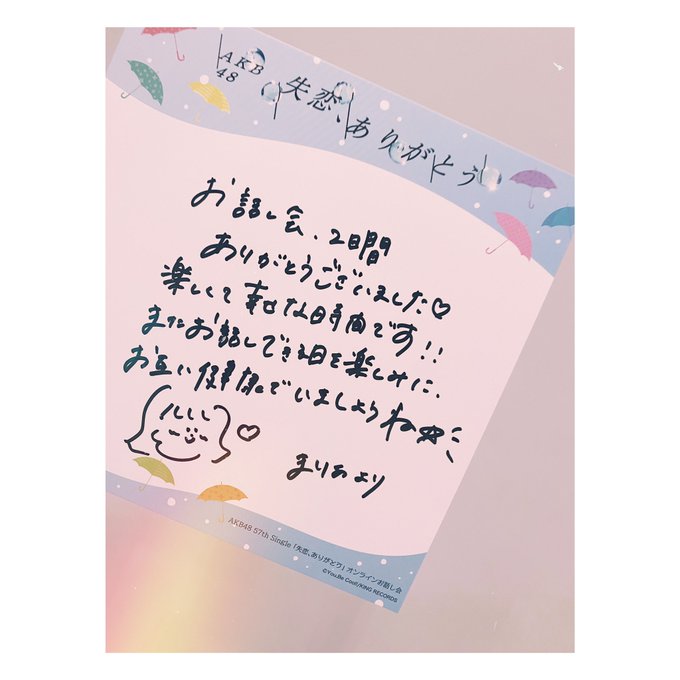 AKB
48
失恋、ありがとう
お話し会、2日間
ありがとうございました♡
楽しくて幸せな時間です!!
またお話しできる日を楽しみに、
お互い健康でいましようね☆
まりあより
AKB48 57th Single「失恋、ありがとう」オンラインお話し会
©You,Be Cool!/KING RECORDS